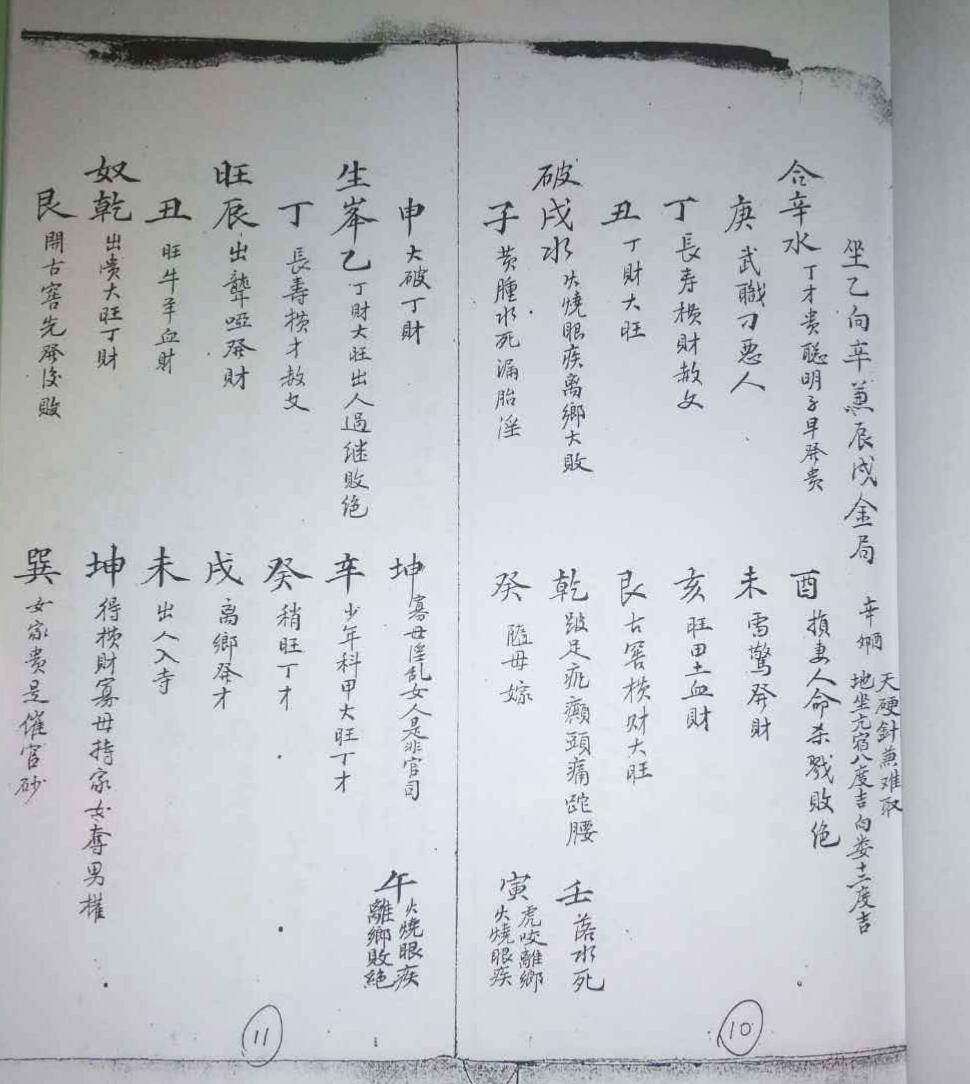 坐乙向辛兼辰戌金局
天硬針兼难取
地坐亢宿八度吉向娄十二度吉
合辛水 丁才贵聪明子早発贵
酉 損妻人命杀戮敗绝
庚 武職刁惡人
未 雷驚発財
丁 長寿横財敖女
亥 旺田土血財
丑 丁財大旺
艮 古窖横财大旺
破戌水 火燒眼疾离鄉大敗
乾 跛足疕癲頭痛跎腰
壬 落水死
子 黄腫水死漏胎淫
癸 隨母嫁
寅 虎咬離鄉
火燒眼疾
申 大破丁財
坤 寡母淫乱女人是非官司
午 火燒眼疾
離鄉敗絕
生峯乙 丁財大旺出人過继敗绝
辛 少年科甲大旺丁才
丁 長壽横才敖女
癸 稍旺丁才
旺辰 出聾啞発財
戌 离鄉発才
丑 旺牛羊血財
未 出人入寺
奴乾 出贵大旺丁財
坤 得横財寡母持家女夺男權
艮 開古窖先発後敗
巽 女家贵是催官砂
10
11